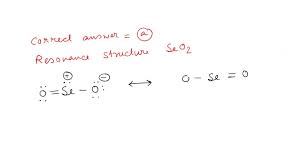 Correct answer = (a)
Resonance structure SeO₂
Ö = Se⊕ - O⊖ ⟷ O - Se = O